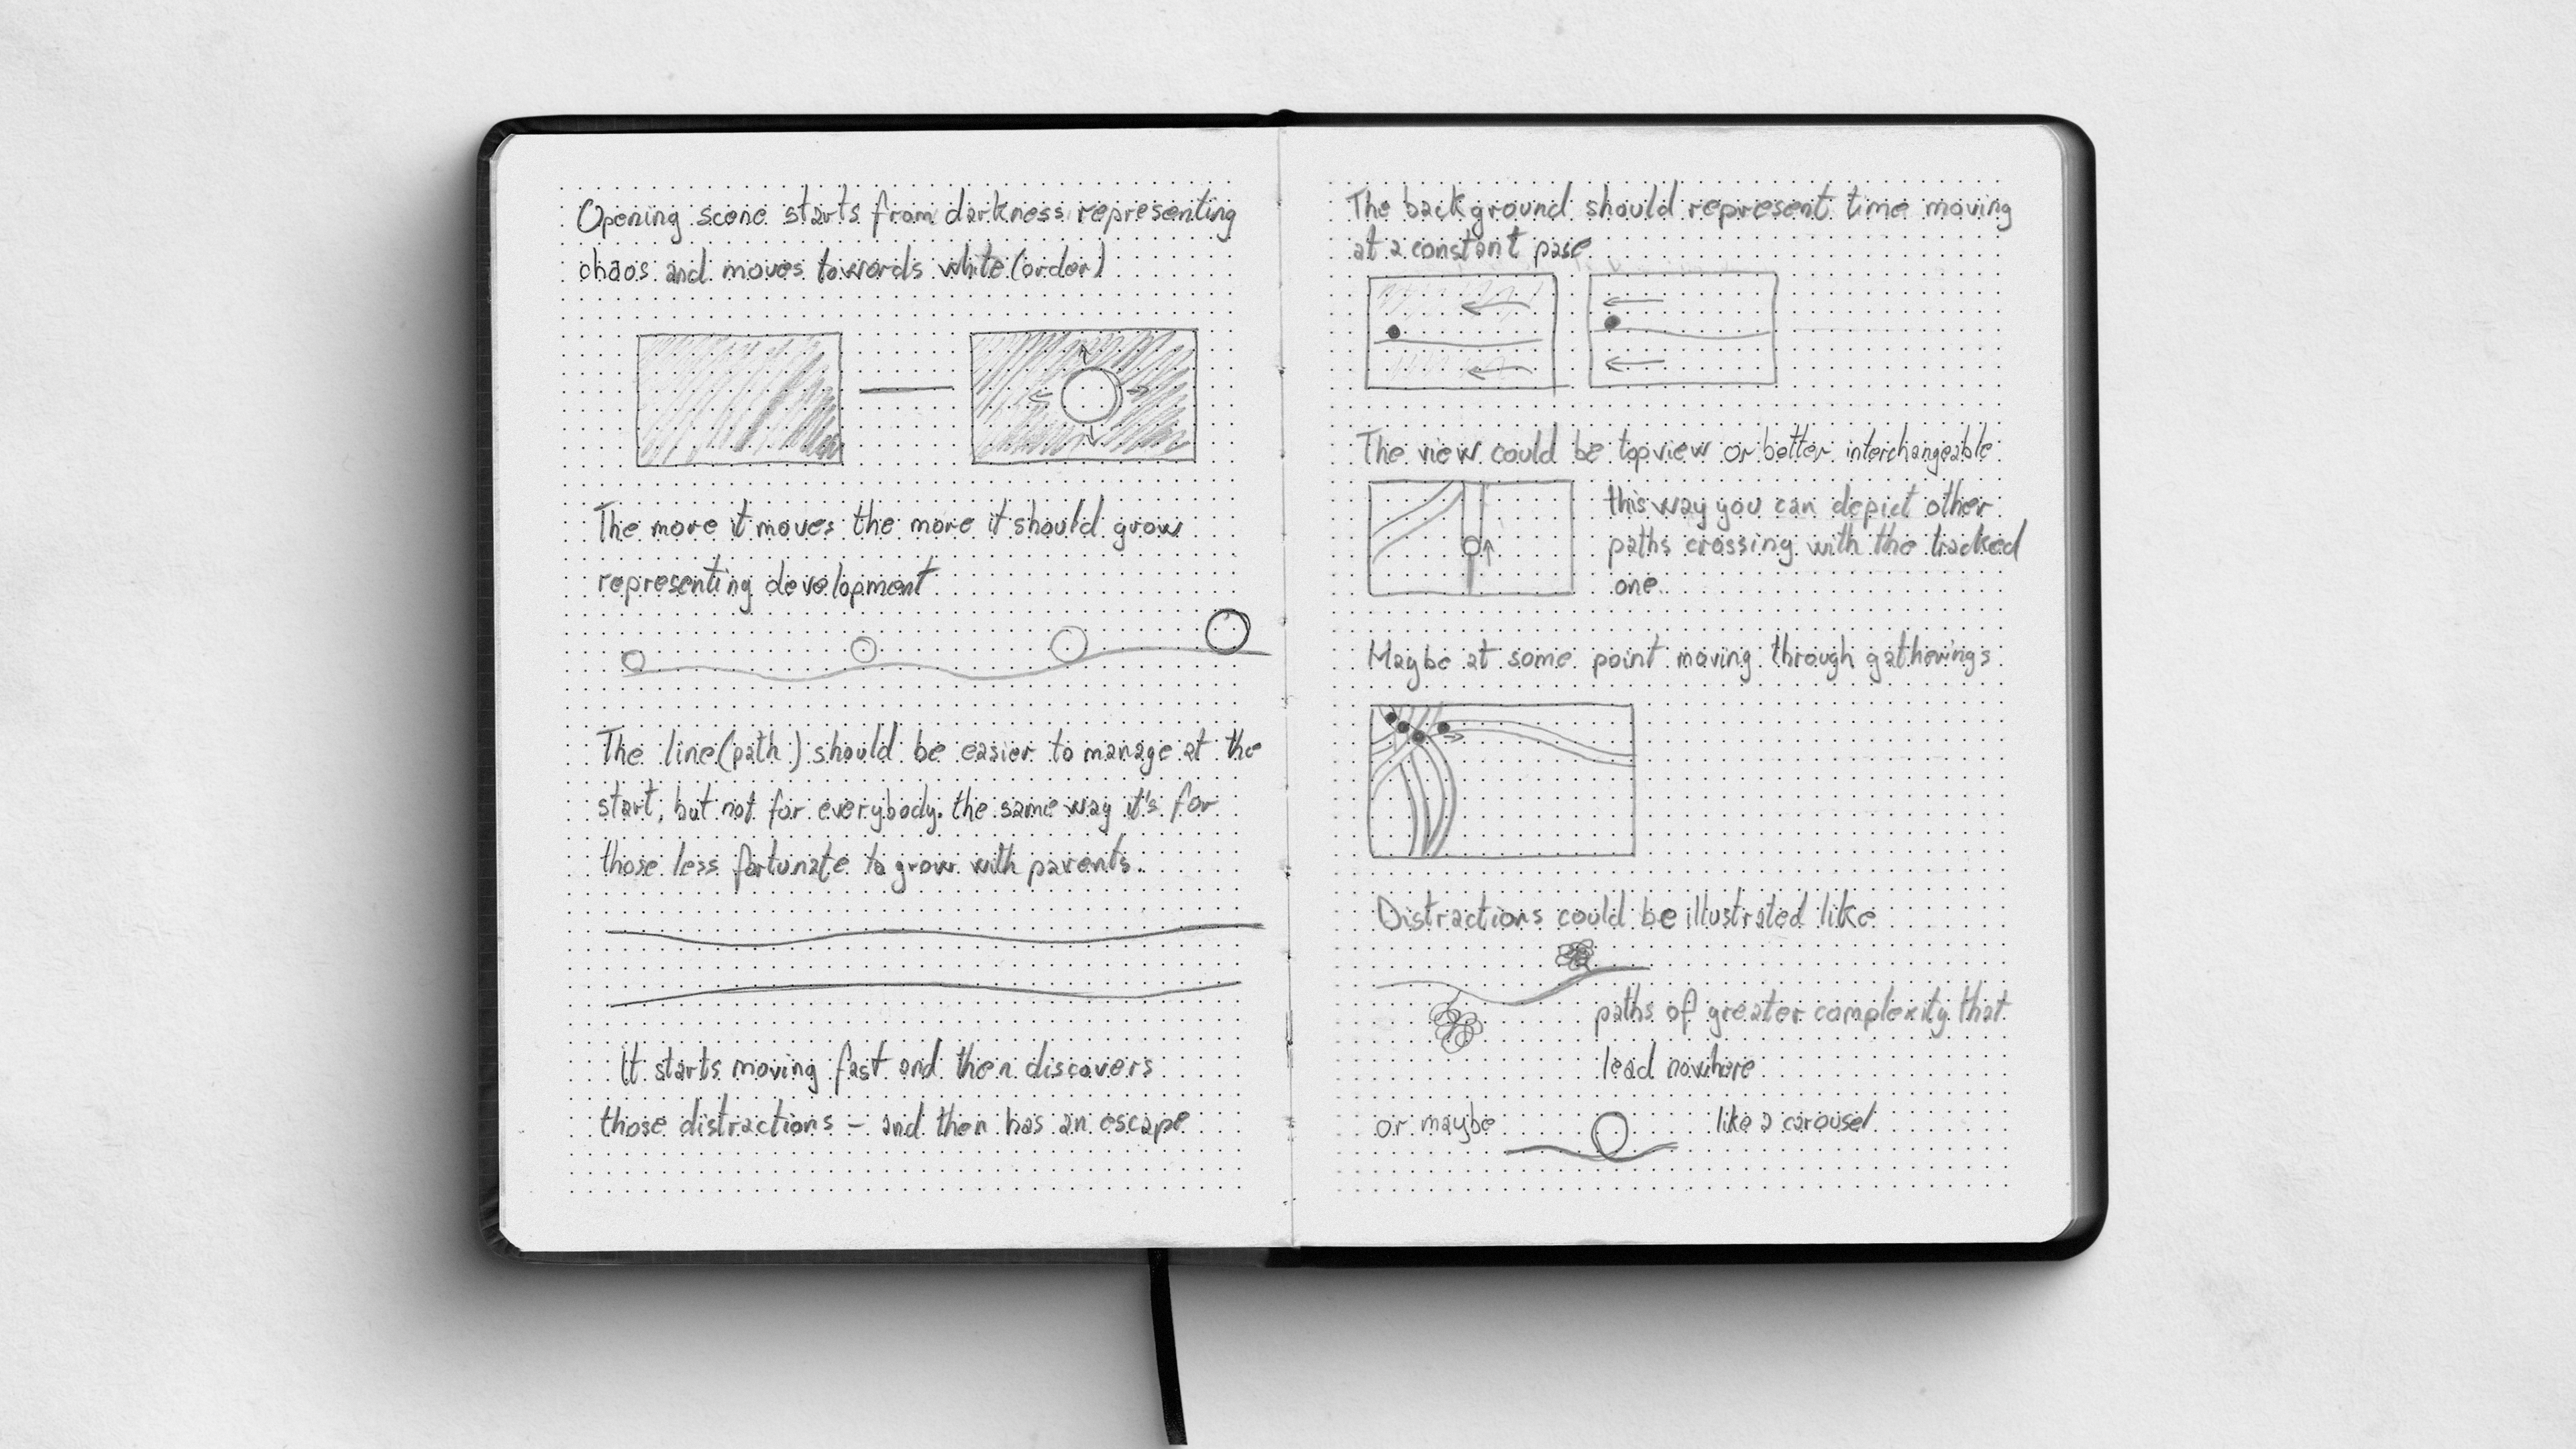 Opening scene starts from darkness representing
chaos and moves towords white (order)
The more it moves the more it should grow
representing development
The line (path) should be easier to manage at the
start, but not for everybody. the same way it's for
those less fortunate to grow with parents..
It starts moving fast and then discovers
those distractions – and then has an escape
The background should represent time moving
at a constant pase
The view could be topview or better interchangeable
this way you can depict other
paths crossing with the tracked
one.
Maybe at some point moving through gatherings
Distractions could be illustrated like
paths of greater complexity that
lead nowhere
or maybe like a carousel